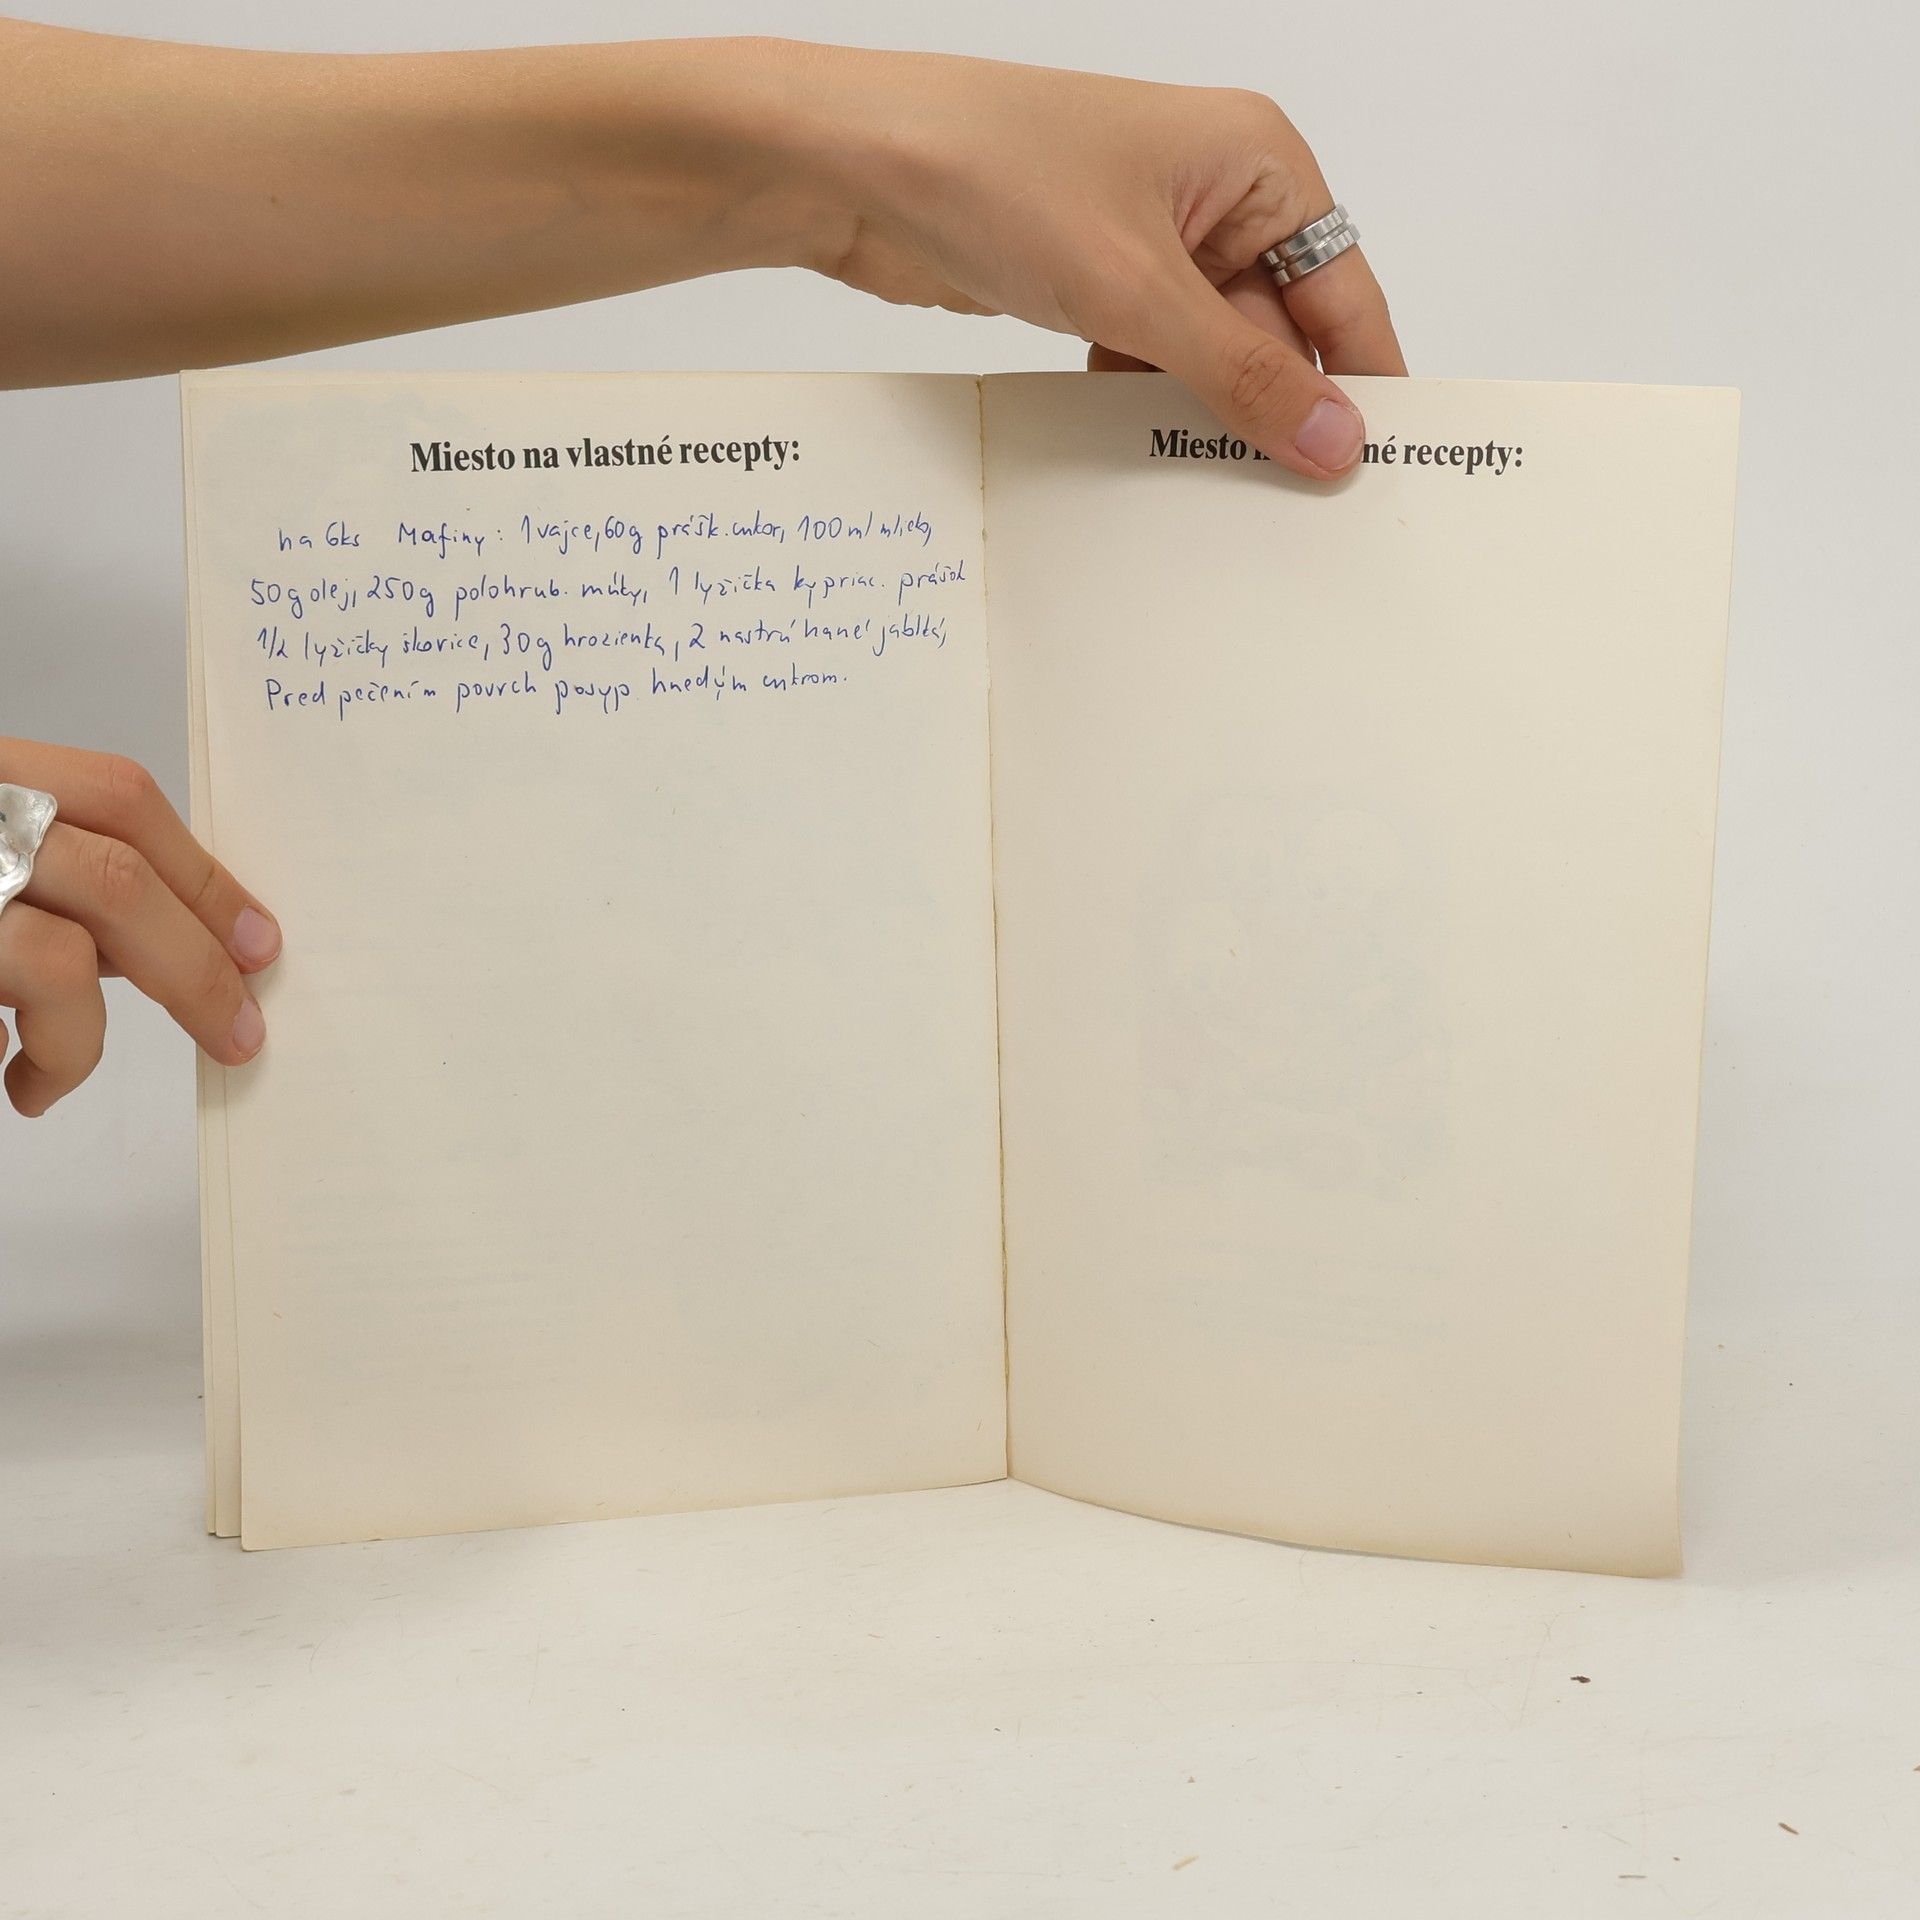 Miesto na vlastné recepty:
na 6ks Mafiny: 1 vajce, 60g prášk. cukor, 100 ml mlieko,
50g olej, 250g polohrub. múky, 1 lyžička kypriac. prášok
1/2 lyžičky škorice, 30g hrozienka, 2 nastrúhané jablká,
Pred pečením povrch posyp hnedým cukrom.
Miesto né recepty: